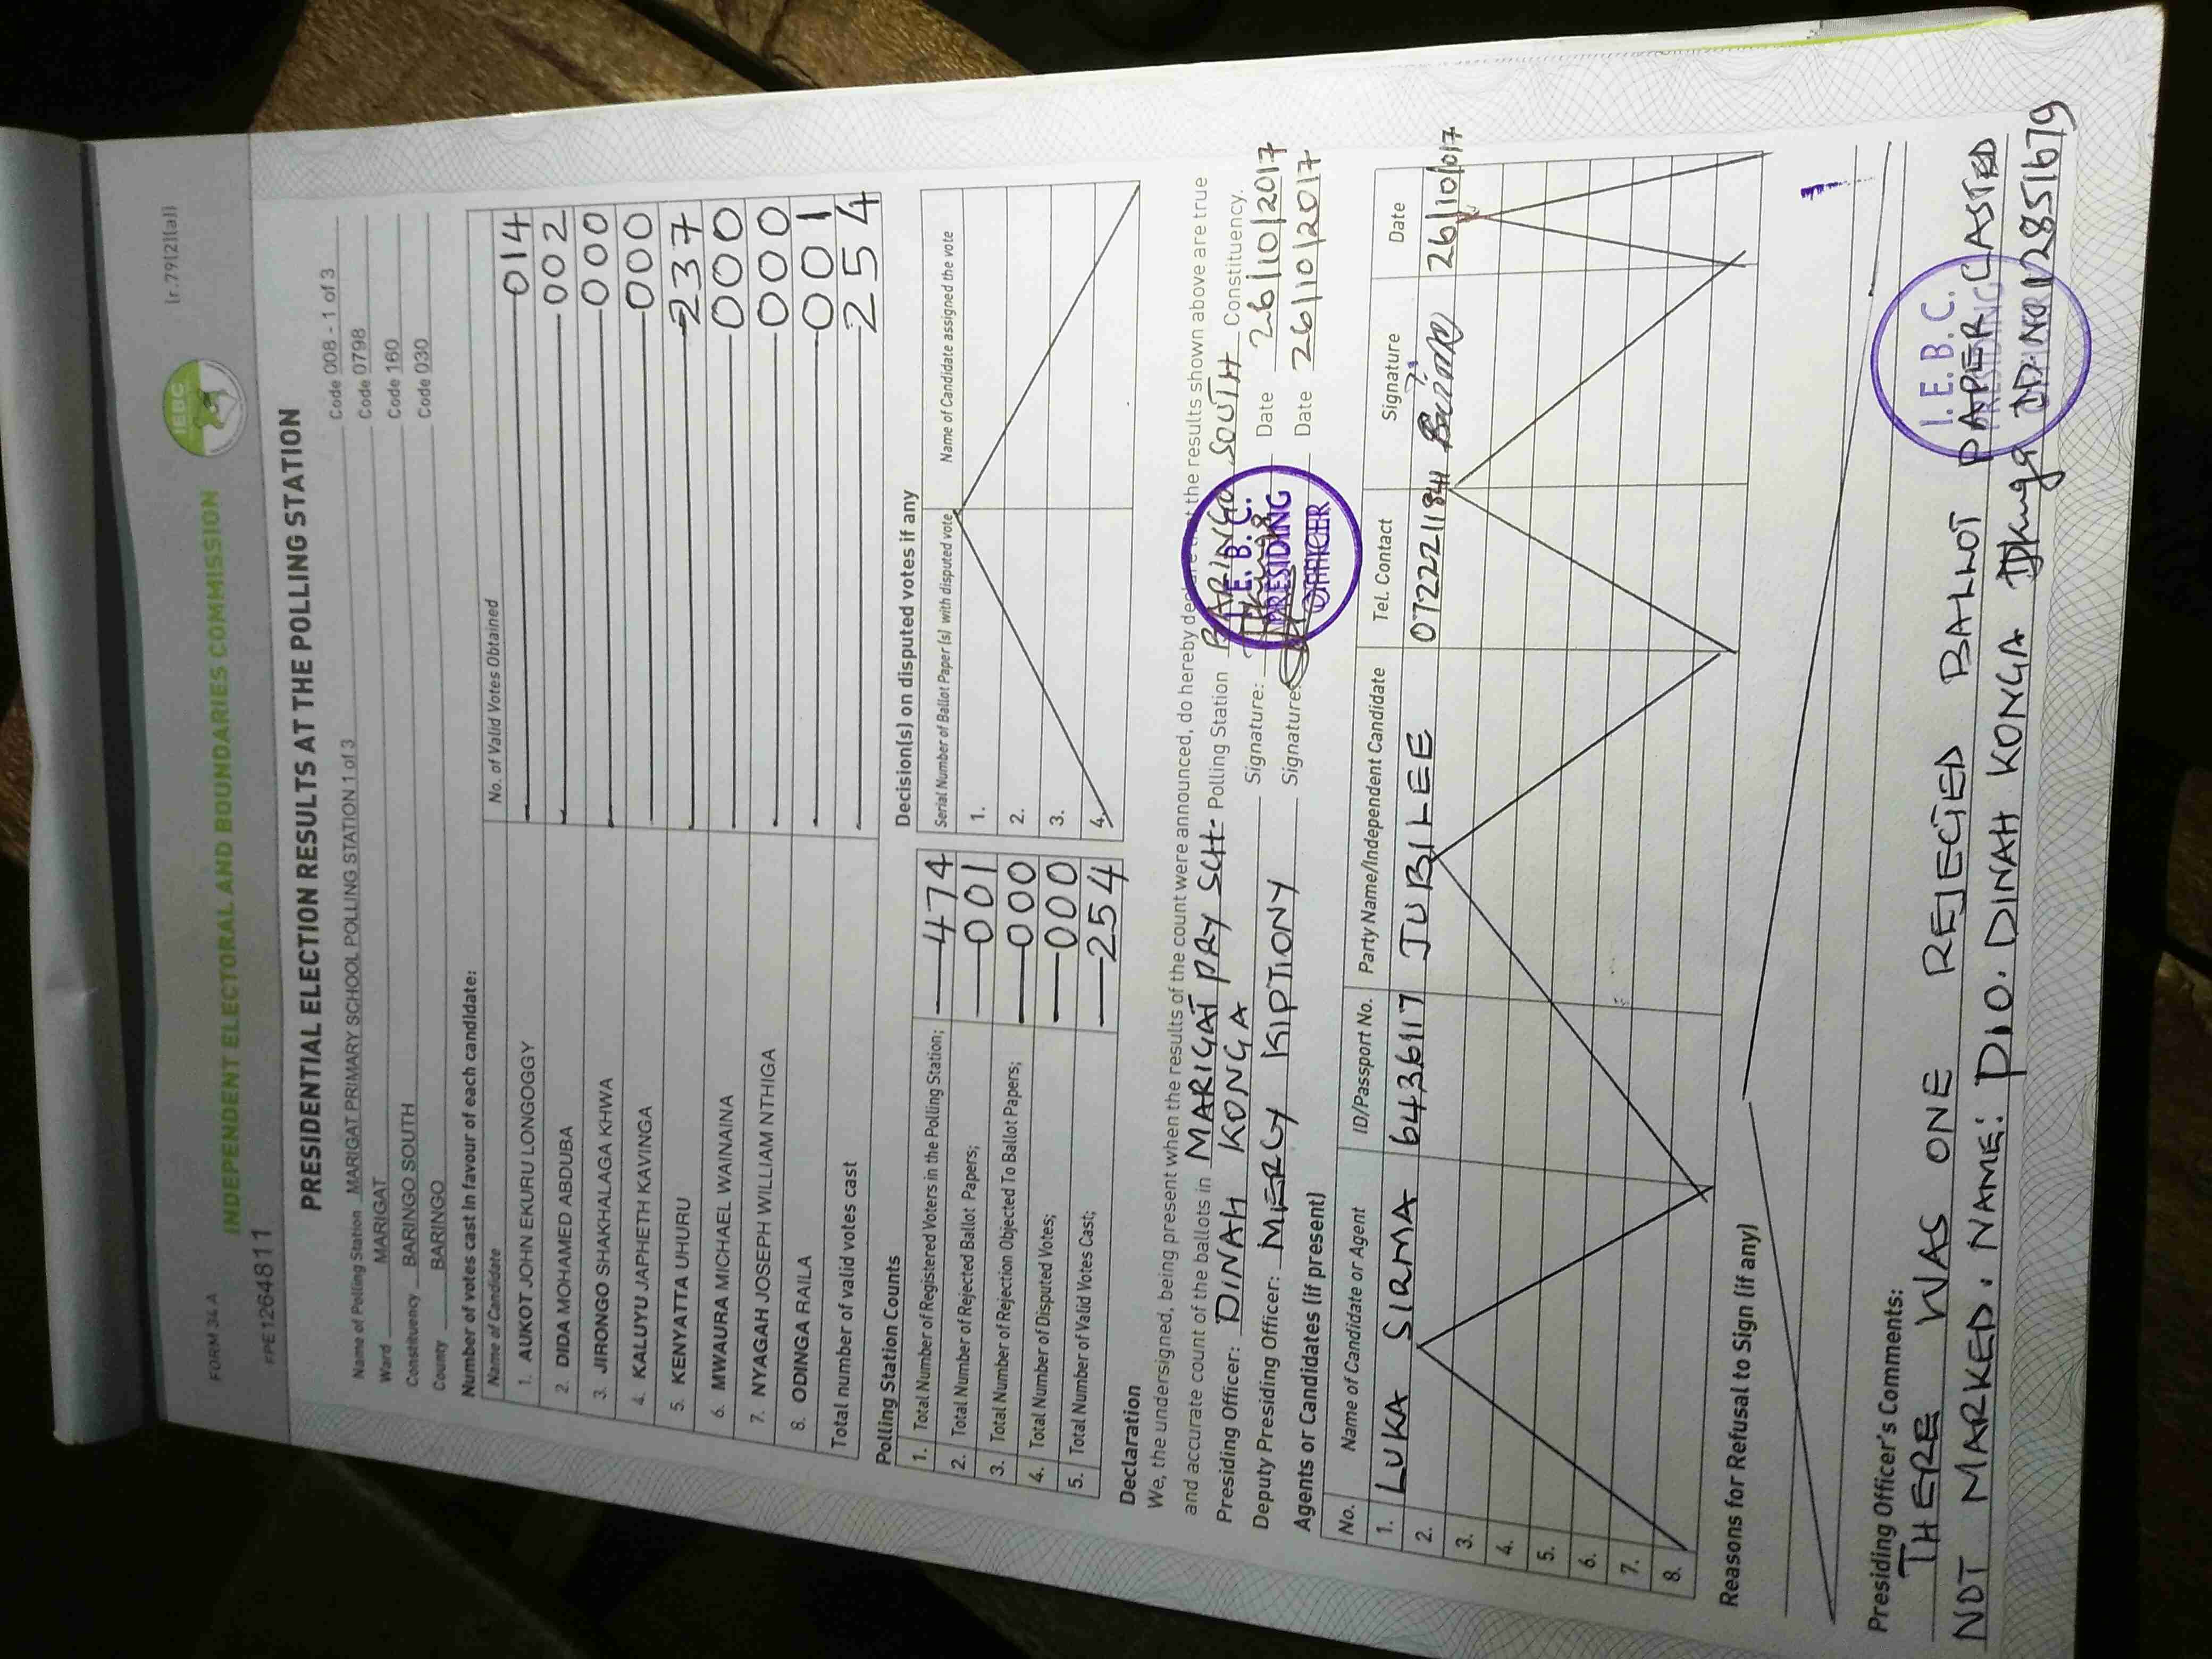 FORM 34 A
INDEPENDENT ELECTORAL AND BOUNDARIES COMMISSION
IEBC
(r.79(2)(a))
FPE1264811
PRESIDENTIAL ELECTION RESULTS AT THE POLLING STATION
Name of Polling Station MARIGAT PRIMARY SCHOOL POLLING STATION 1 of 3 Code 008 - 1 of 3
Ward MARIGAT Code 0798
Constituency BARINGO SOUTH Code 160
County BARINGO Code 030
Number of votes cast in favour of each candidate:
Name of Candidate No. of Valid Votes Obtained
1. AUKOT JOHN EKURU LONGOGGY 014
2. DIDA MOHAMED ABDUBA 002
3. JIRONGO SHAKHALAGA KHWA 000
4. KALUYU JAPHETH KAVINGA 000
5. KENYATTA UHURU 237
6. MWAURA MICHAEL WAINAINA 000
7. NYAGAH JOSEPH WILLIAM NTHIGA 000
8. ODINGA RAILA 001
Total number of valid votes cast 254
Polling Station Counts
1. Total Number of Registered Voters in the Polling Station; 474
2. Total Number of Rejected Ballot Papers; 001
3. Total Number of Rejection Objected To Ballot Papers; 000
4. Total Number of Disputed Votes; 000
5. Total Number of Valid Votes Cast; 254
Decision(s) on disputed votes if any
Serial Number of Ballot Paper (s) with disputed vote Name of Candidate assigned the vote
1.
2.
3.
4.
Declaration
We, the undersigned, being present when the results of the count were announced, do hereby declare that the results shown above are true
and accurate count of the ballots in MARIGAT PRY SCH- Polling Station BARINGO SOUTH Constituency.
Presiding Officer: DINAH KONGA Signature: Date 26/10/2017
Deputy Presiding Officer: MERCY KIPTIONY Signature: Date 26/10/2017
I. E. B. C.
PRESIDING
OFFICER
Agents or Candidates (if present)
No. Name of Candidate or Agent ID/Passport No. Party Name/Independent Candidate Tel. Contact Signature Date
1. LUKA SIAMA 6436117 JUBILEE 0722211841 26/10/017
2.
3.
4.
5.
6.
7.
8.
Reasons for Refusal to Sign (if any)
Presiding Officer's Comments:
THERE WAS ONE REJECTED BALLOT PAPER CASTED
NOT MARKED. NAME: P/O. DINAH KONGA ID NO 12851679
I. E. B. C.
PRESIDING